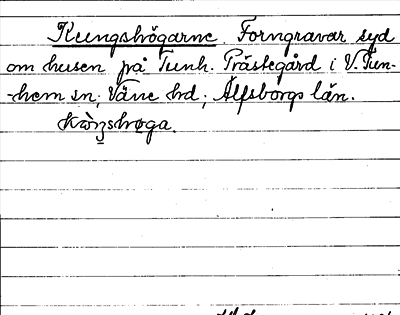 Kungshögarne Forngravar syd
om husen på Tunh. Prästegård i V. Tun-
-hem sn; Väne hd; Älfsborgs län.
kòŋshøga.